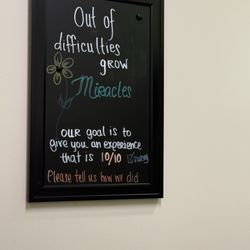 Out of
difficulties
grow
Miracles
our goal is to
give you an experience
that is 10/10
Please tell us how we did